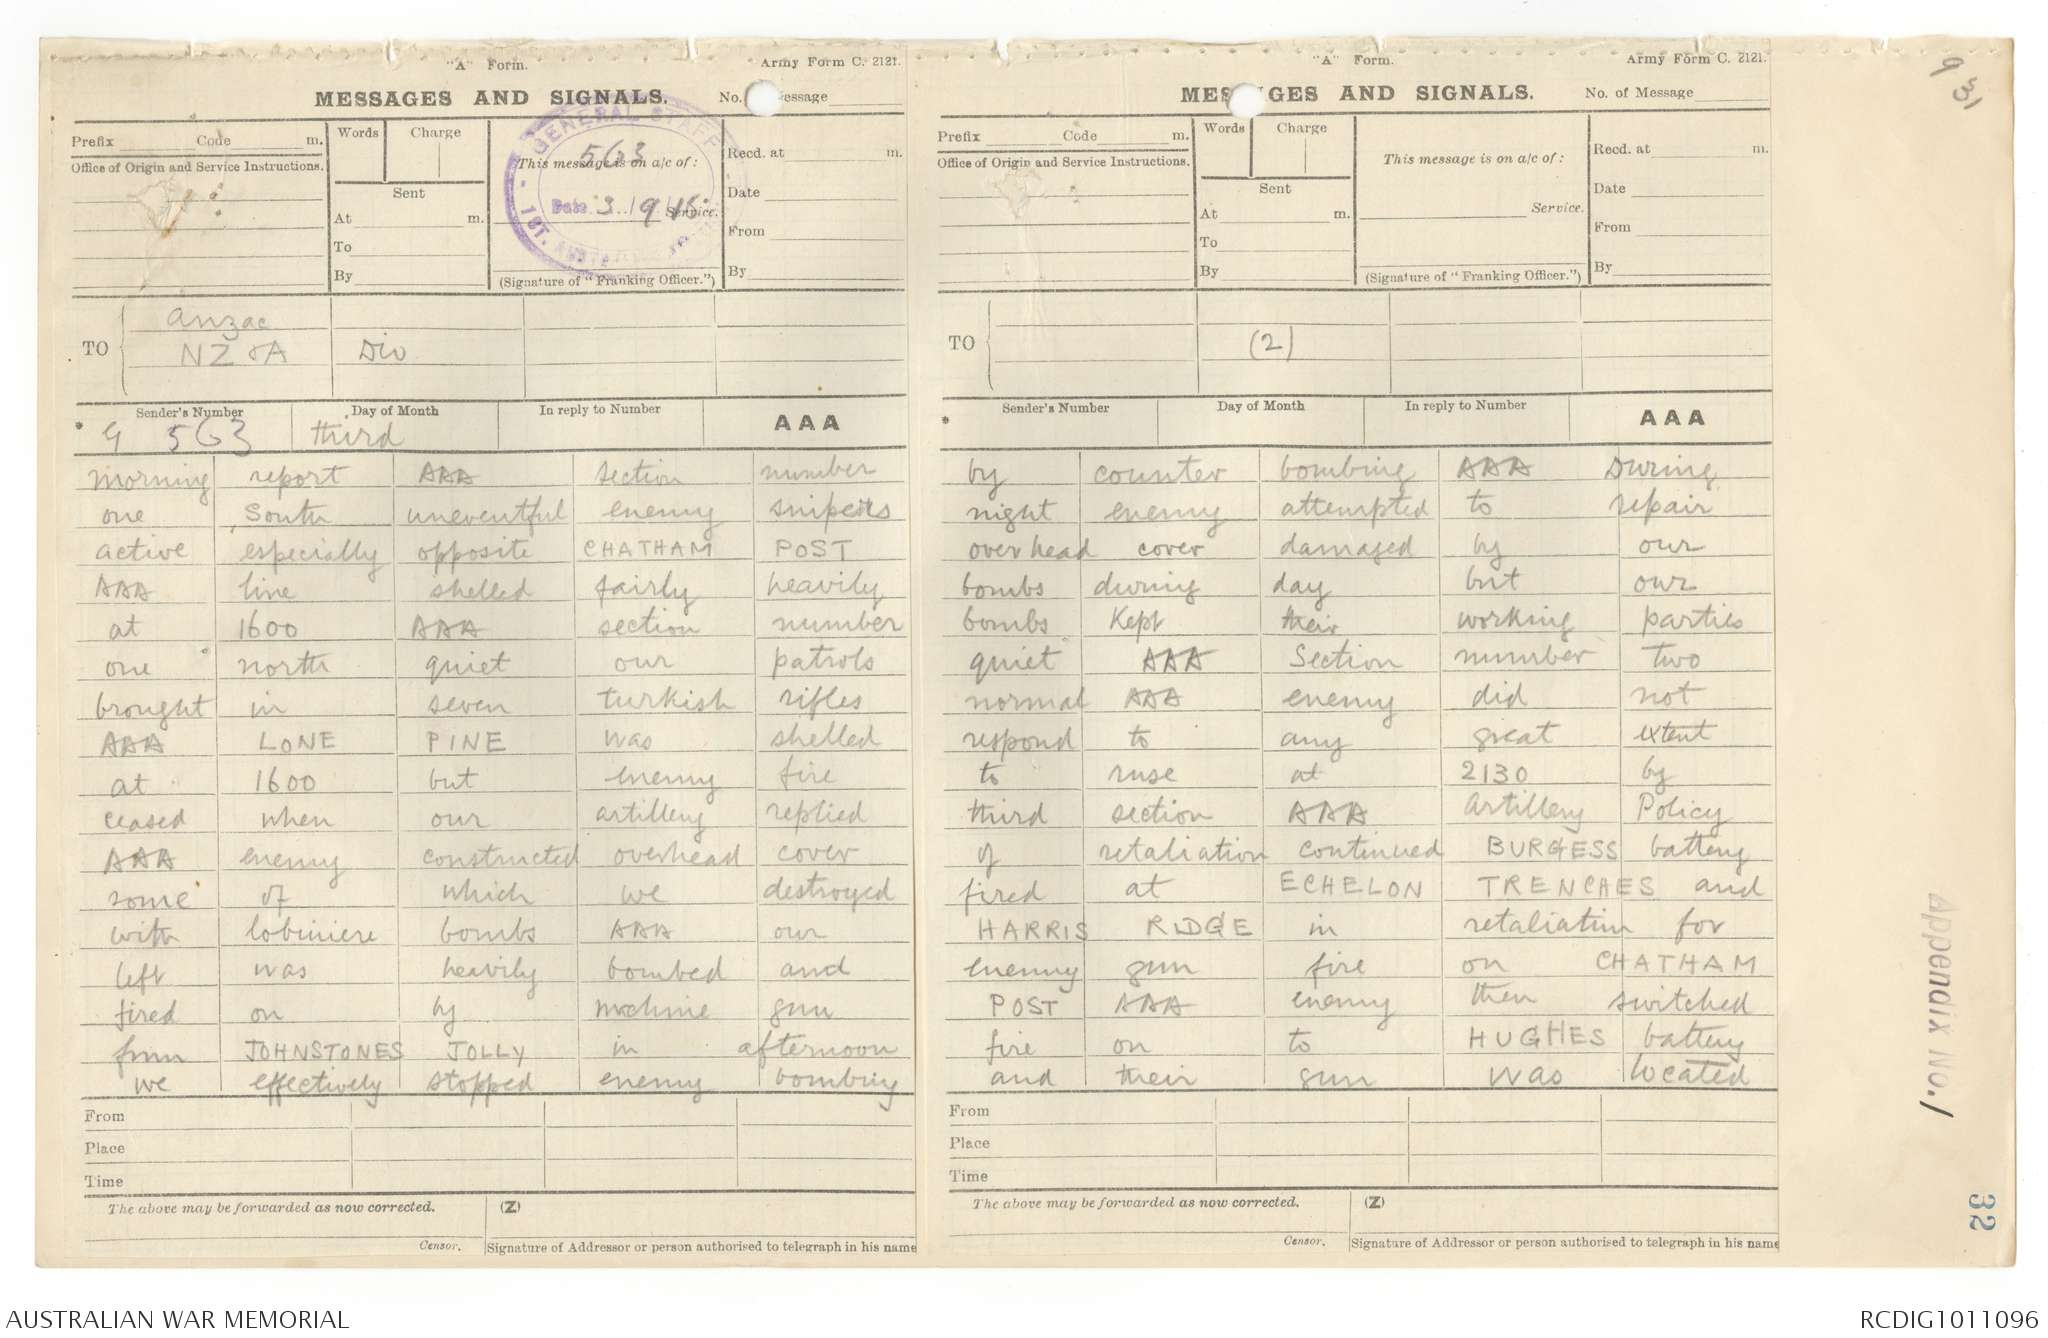 "A" Form. Army Form C. 2121.
MESSAGES AND SIGNALS. No. Message
Prefix Code m. Words Charge This message is on a/c of: Recd. at m.
Office of Origin and Service Instructions. Sent Date
At m. Service. From
To
By (Signature of "Franking Officer.") By
GENERAL STAFF
563
Date 3 / 9 / 15
1ST.
TO Anzac
NZ & A Div
Sender's Number Day of Month In reply to Number AAA
* G 563 third
morning report AAA section number
one South uneventful enemy snipers
active especially opposite CHATHAM POST
AAA line shelled fairly heavily
at 1600 AAA section number
one north quiet our patrols
brought in seven turkish rifles
AAA LONE PINE was shelled
at 1600 but enemy fire
ceased when our artillery replied
AAA enemy constructed overhead cover
some of which we destroyed
with lobiniere bombs AAA our
left was heavily bombed and
fired on by machine gun
from JOHNSTONES JOLLY in afternoon
we effectively stopped enemy bombing
From
Place
Time
The above may be forwarded as now corrected. (Z)
Censor. Signature of Addressor or person authorised to telegraph in his name
"A" Form. Army Form C. 2121.
MES GES AND SIGNALS. No. of Message
Prefix Code m. Words Charge This message is on a/c of: Recd. at m.
Office of Origin and Service Instructions. Sent Date
At m. Service. From
To
By (Signature of "Franking Officer.") By
TO (2)
Sender's Number Day of Month In reply to Number AAA
*
by counter bombing AAA During
night enemy attempted to repair
overhead cover damaged by our
bombs during day but our
bombs kept their working parties
quiet AAA Section number two
normal AAA enemy did not
respond to any great extent
to ruse at 2130 by
third section AAA Artillery Policy
of retaliation continued BURGESS battery
fired at ECHELON TRENCHES and
HARRIS RIDGE in retaliation for
enemy gun fire on CHATHAM
POST AAA enemy then switched
fire on to HUGHES battery
and their gun was located
From
Place
Time
The above may be forwarded as now corrected. (Z)
Censor. Signature of Addressor or person authorised to telegraph in his name
9
31
Appendix No. 1
32
AUSTRALIAN WAR MEMORIAL RCDIG1011096